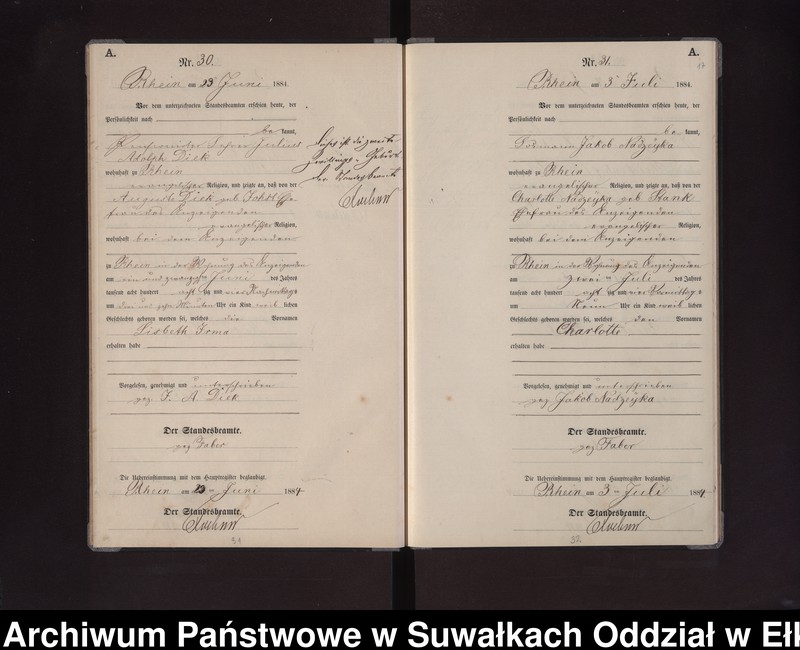 A.
Nr. 30.
Rhein am 23 Juni 1884
Vor dem unterzeichneten Standesbeamten erschien heute, der
Persönlichkeit nach
be kannt,
Julius
Adolph Dick
wohnhaft zu Rhein
evangelischer Religion, und zeigte an, daß von der
Auguste Dick geb.
frau des Anzeigenden
evangelischer Religion,
wohnhaft bei dem Anzeigenden
zu Rhein in der Wohnung des Anzeigenden
am ein und zwanzigsten Juni des Jahres
tausend acht hundert acht zig und vier Nachmittags
um drei und zehn Minuten Uhr ein Kind weib lichen
Geschlechts geboren worden sei, welches die Vornamen
Lisbeth Irma
erhalten habe
Vorgelesen, genehmigt und unterschrieben
gez. J. A Dick
Der Standesbeamte.
gez Faber
Die Uebereinstimmung mit dem Hauptregister beglaubigt.
Rhein am Juni 1884
Der Standesbeamte.
31
dieses ist die zweite
Zwillings-Geburt
der Standesbeamte
A.
17
Nr. 31.
Rhein am 3 Juli 1884.
Vor dem unterzeichneten Standesbeamten erschien heute, der
Persönlichkeit nach
be kannt,
Jakob Nadzeyka
wohnhaft zu Rhein
evangelischer Religion, und zeigte an, daß von der
Charlotte Nadzeyka geb Kank
Ehefrau des Anzeigenden
evangelischer Religion,
wohnhaft bei dem Anzeigenden
zu Rhein in der Wohnung des Anzeigenden
am zweiten Juli des Jahres
tausend acht hundert acht zig und vier Vormittags
um Neun Uhr ein Kind weib lichen
Geschlechts geboren worden sei, welches den Vornamen
Charlotte
erhalten habe
Vorgelesen, genehmigt und unterschrieben
gez Jakob Nadzeyka
Der Standesbeamte.
gez Faber
Die Uebereinstimmung mit dem Hauptregister beglaubigt.
Rhein am 3 ten Juli 1884
Der Standesbeamte.
32.
Archiwum Państwowe w Suwałkach Oddział w Ełk